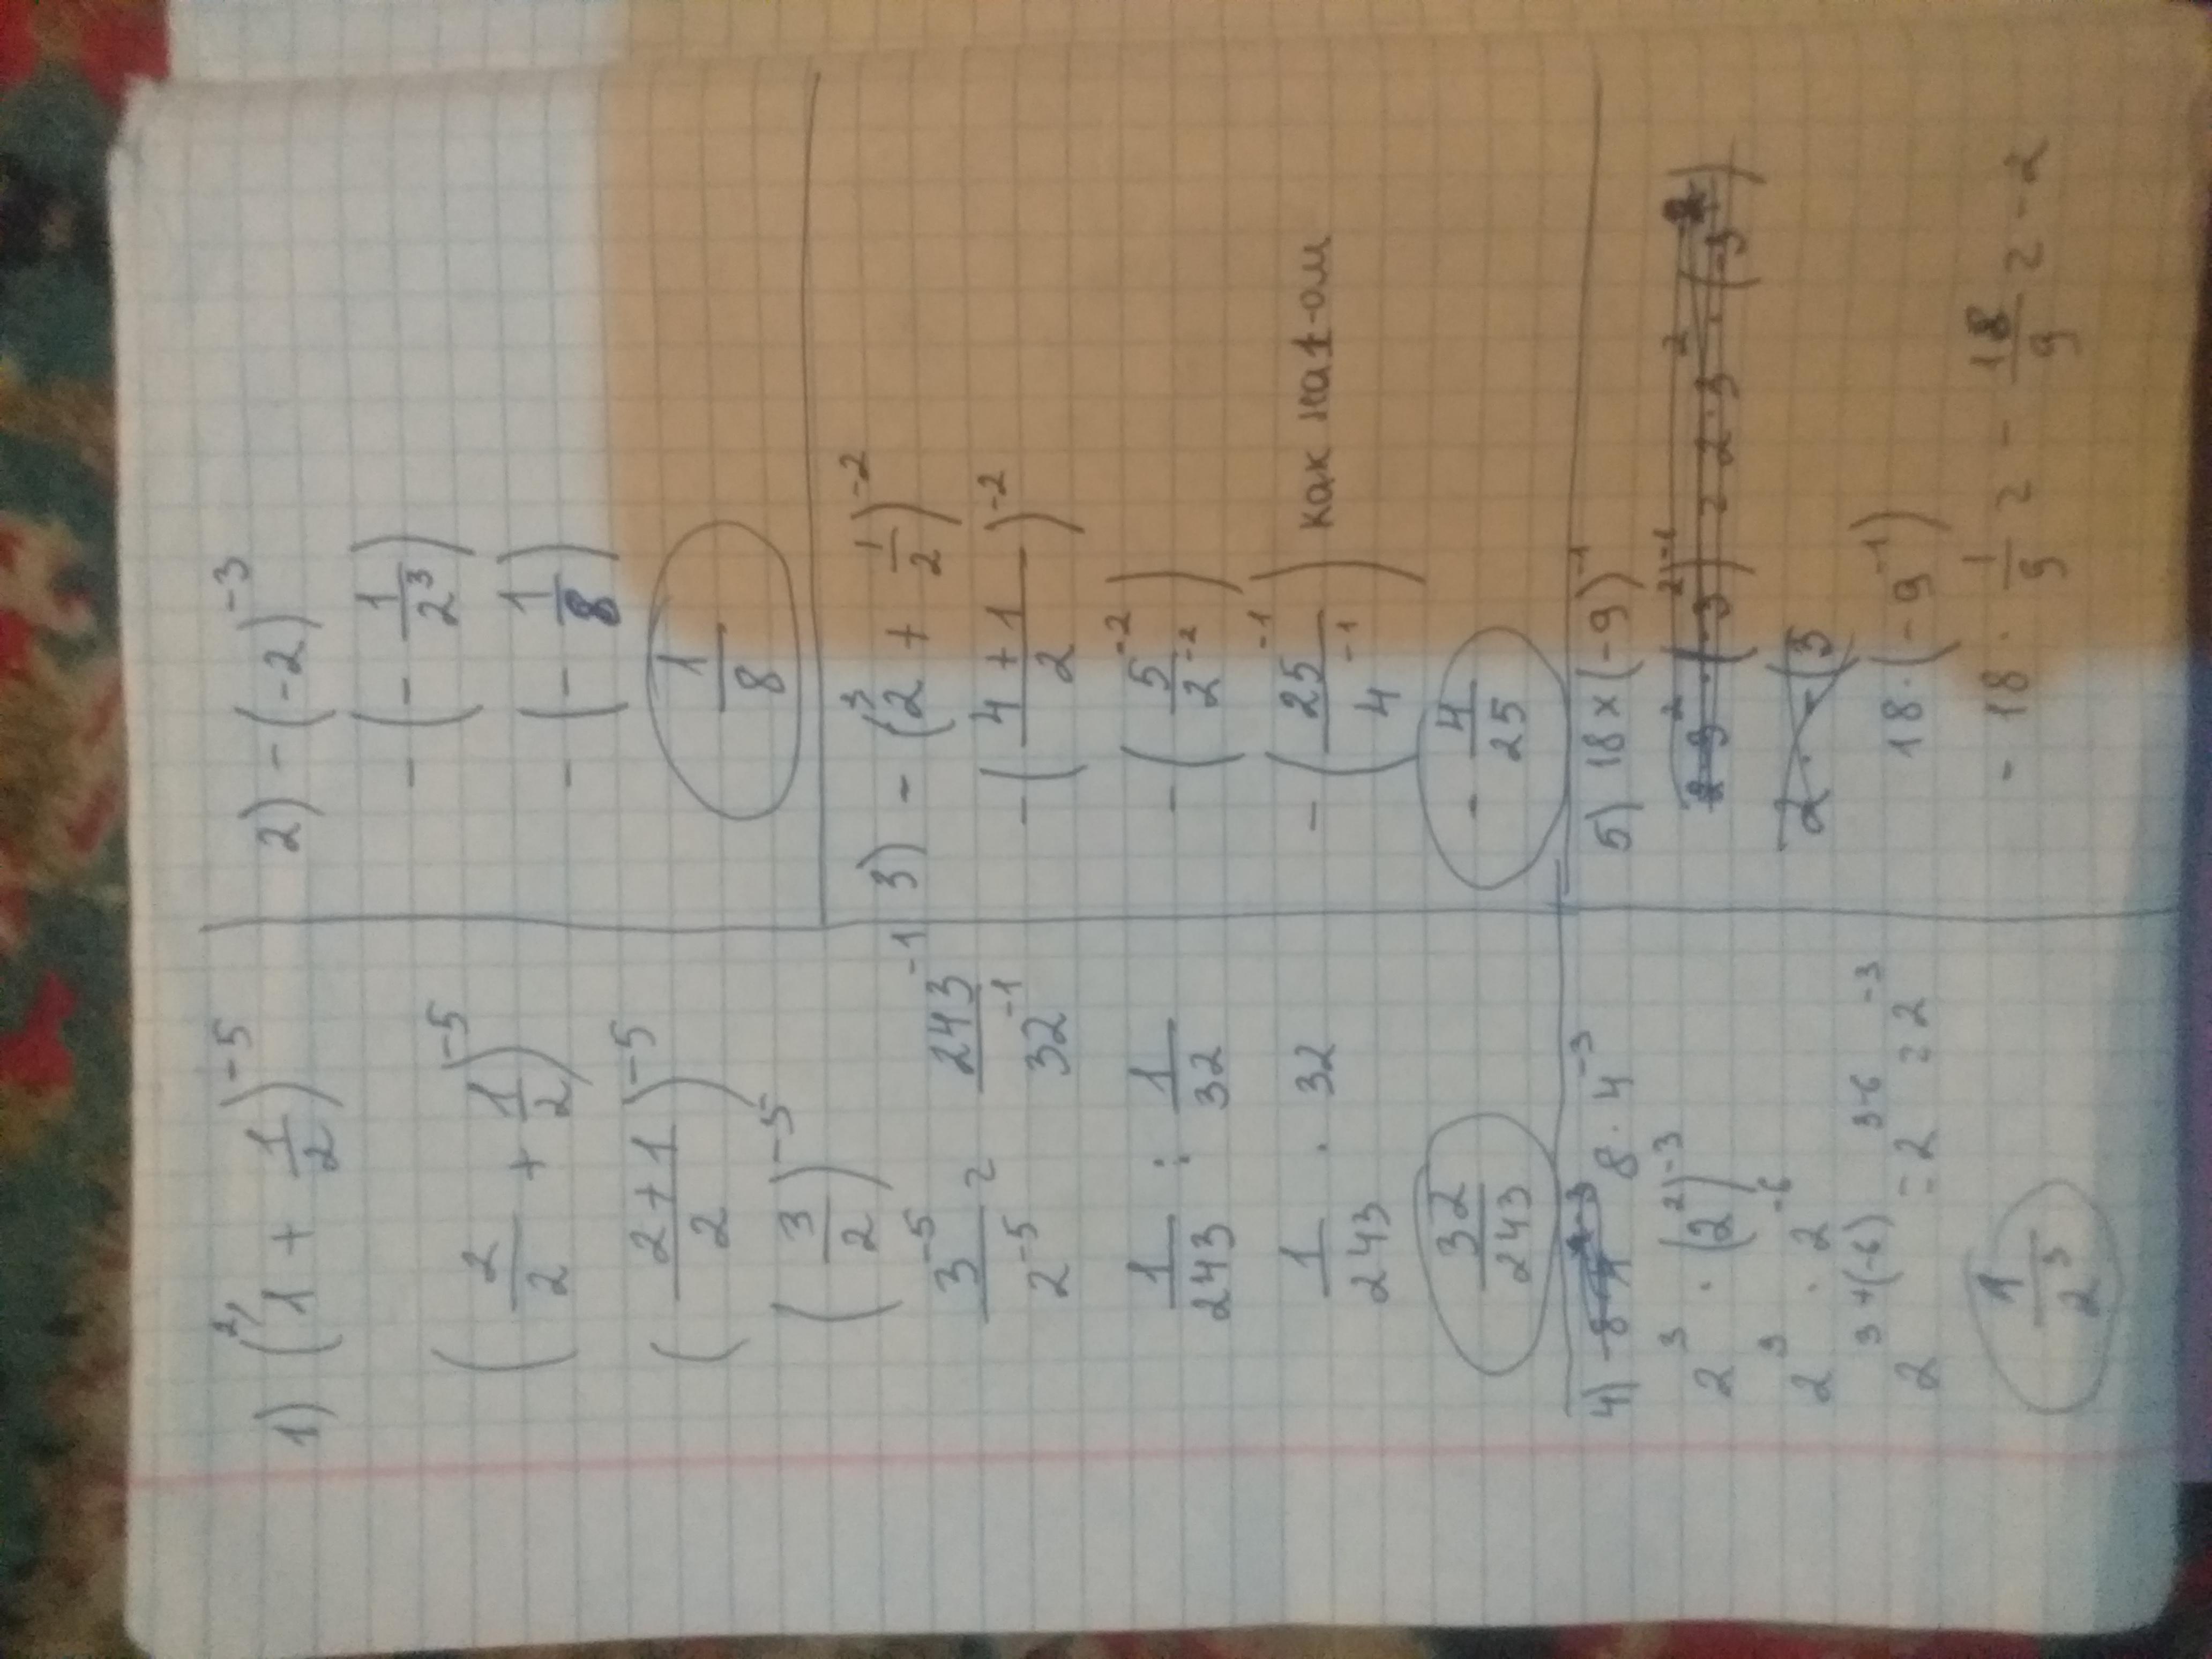 1) (1 + 1/2)^-5
(2/2 + 1/2)^-5
((2+1)/2)^-5
(3/2)^-5
3^-5/2^-5 = 243^-1/32^-1
1/243 : 1/32
1/243 · 32
32/243
2) -(-2)^-3
-(-1/2^3)
-(-1/8)
1/8
3) -(2 + 1/2)^-2
-((4+1)/2)^-2
-(5^-2/2^-2)
-(25^-1/4^-1) как нат-ом
-4/25
4) 8 · 4^-3
2^3 · (2^2)^-3
2^3 · 2^-6
2^(3+(-6)) = 2^(3-6) = 2^-3
1/2^3
5) 18 × (-9)^-1
18 · (-9^-1)
-18 · 1/9 = -18/9 = -2